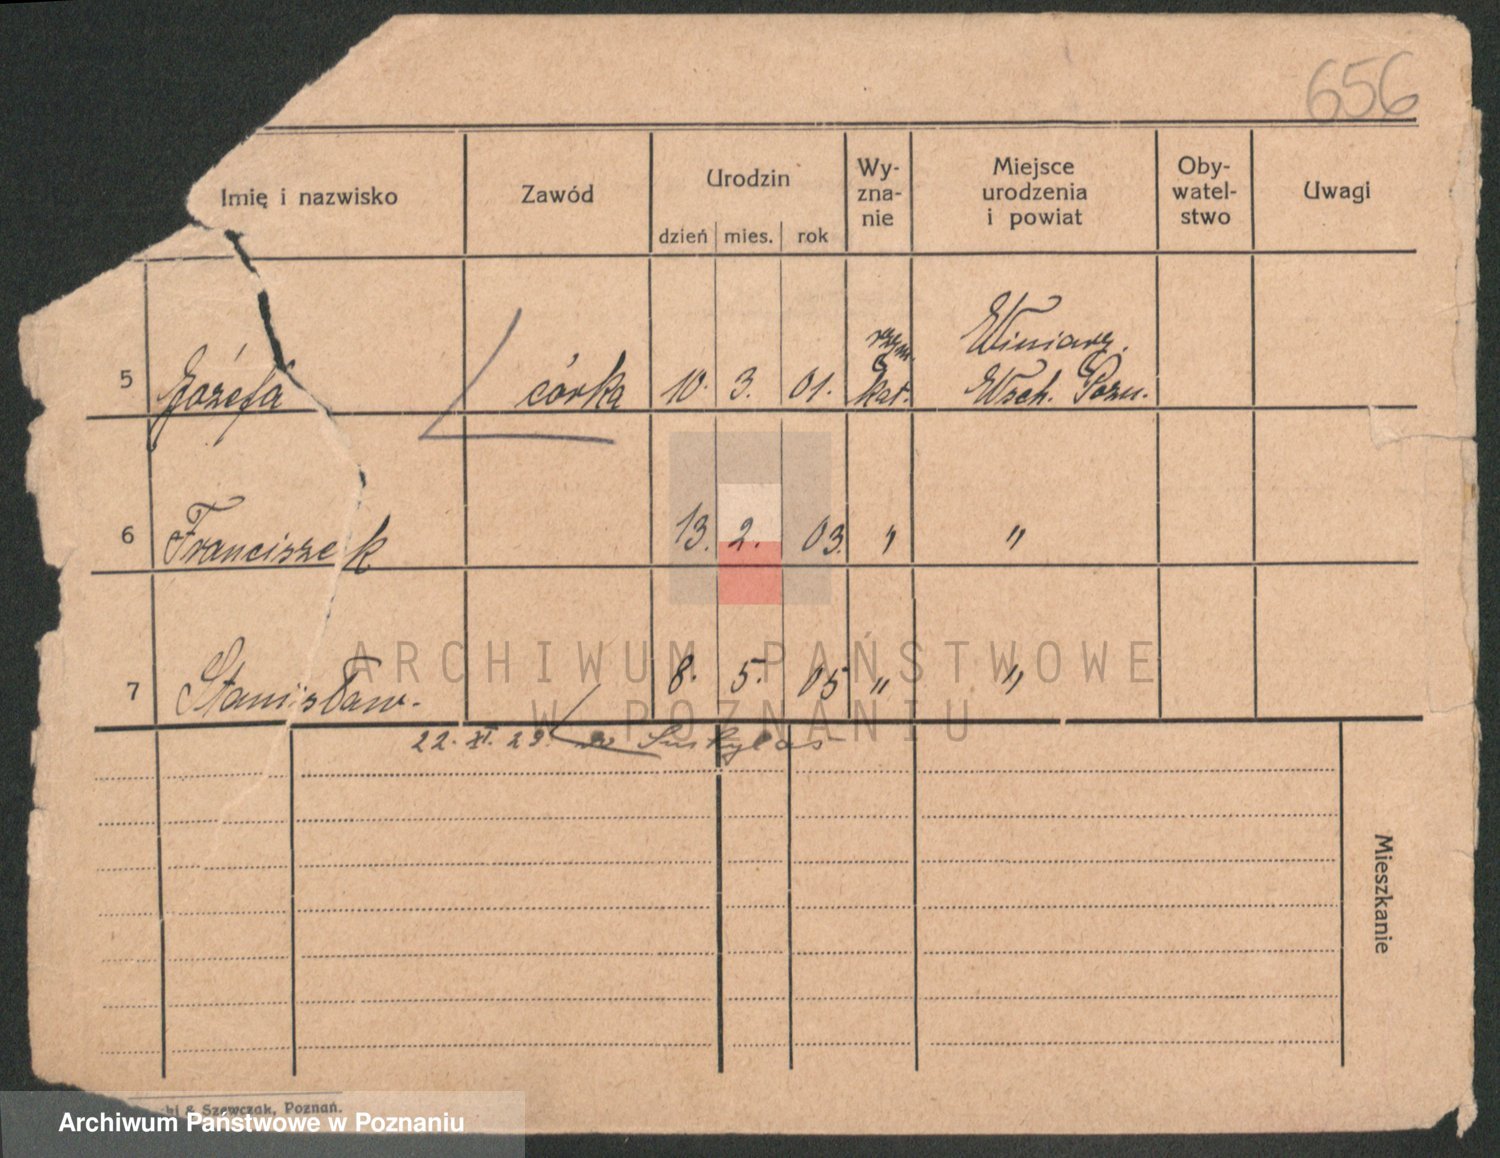 656
Imię i nazwisko Zawód Urodzin dzień mies. rok Wy- zna- nie Miejsce urodzenia i powiat Oby- watel- stwo Uwagi
5 Józefa córka 10. 3. 01. rzym. kat. Winiary. Wsch. Pozn.
6 Franciszek 13. 2. 03. " "
7 Stanisław. 8. 5. 05 " "
22. XI. 29.
Mieszkanie
ARCHIWUM PAŃSTWOWE
W POZNANIU
& Szewczak, Poznań.
Archiwum Państwowe w Poznaniu